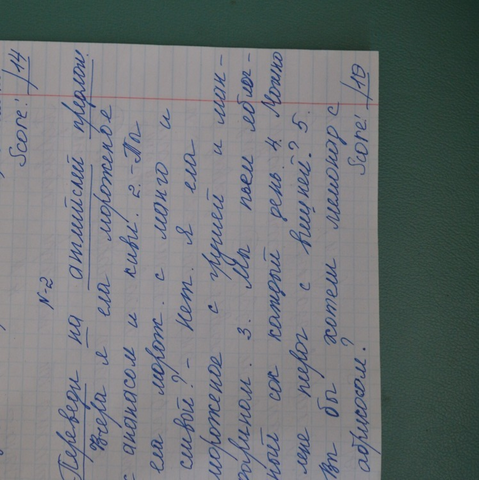 Score: /14
N-2
Переведи на английский предлож!
Вчера я ела мороженое
с ананасом и киви. 2. -Ты
ела морож. с манго и
сливой? - нет. я ела
мороженое с грушей и ман-
дарином. 3. Мы пьем яблоч-
ный сок каждый день. 4. Можно
мне пирог с вишней? 5.
Вы бы хотели лимонад с
абрикосом? Score: /10